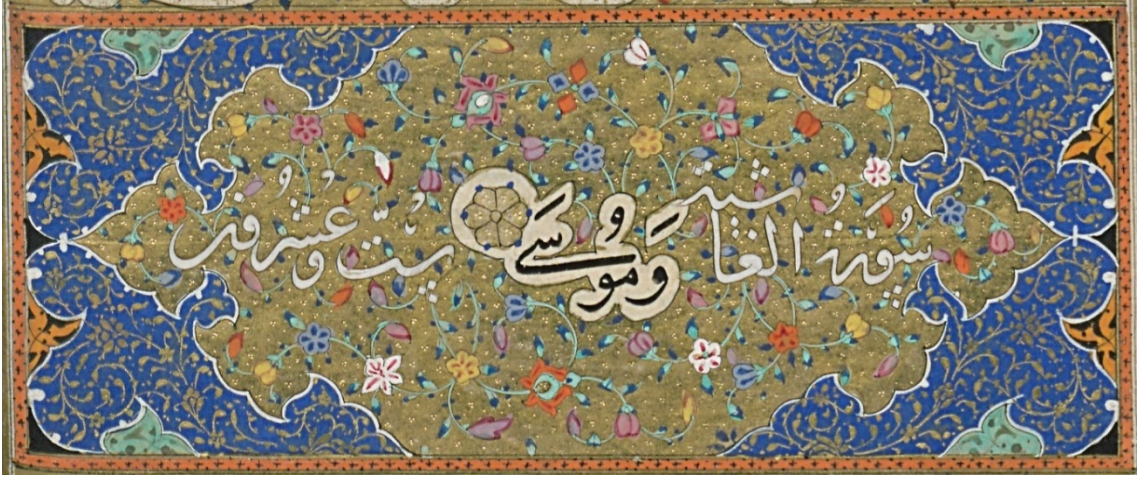 سُورَةُ الغاشية وَمُوسَى ستٌّ وعشرُونَ